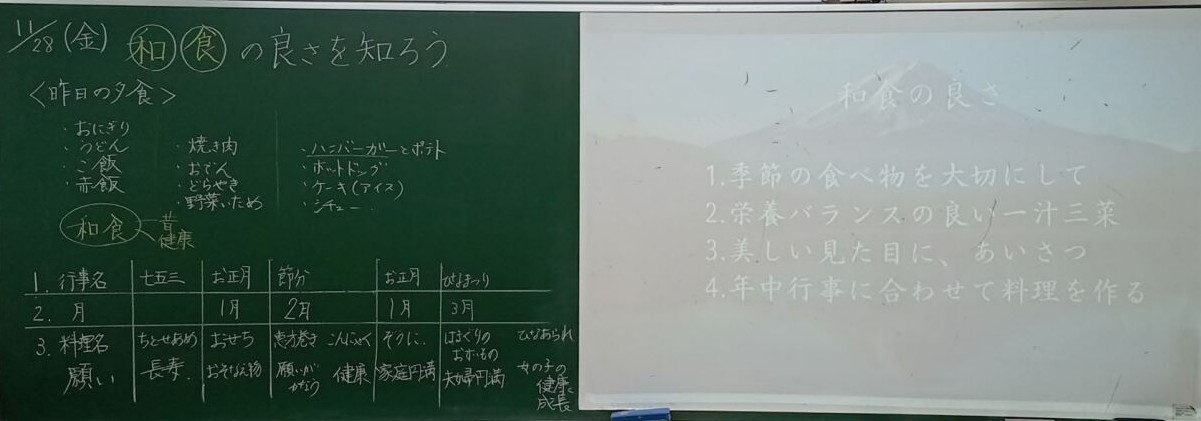 11/28(金) 和食の良さを知ろう
<昨日の夕食>
・おにぎり
・うどん
・ご飯
・赤飯
・焼き肉
・おでん
・どらやき
・野菜いため
・ハンバーガーとポテト
・ホットドッグ
・ケーキ(アイス)
・シチュー
和食 昔
健康
1. 行事名 七五三 お正月 節分 お正月 ひなまつり
2. 月 1月 2月 1月 3月
3. 料理名 ちとせあめ おせち 恵方巻き こんにゃく ぞうに はまぐりのおすいもの ひなあられ
願い 長寿 おそなえ物 願いがかなう 健康 家庭円満 夫婦円満 女の子の健康成長
和食の良さ
1.季節の食べ物を大切にして
2.栄養バランスの良い一汁三菜
3.美しい見た目に、あいさつ
4.年中行事に合わせて料理を作る